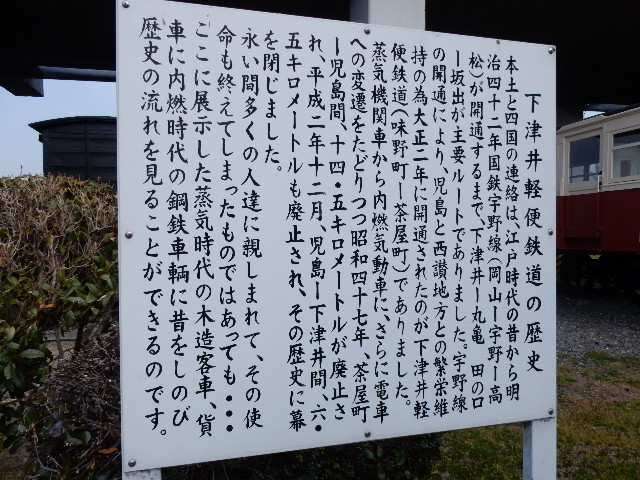 下津井軽便鉄道の歴史
本土と四国の連絡は、江戸時代の昔から明
治四十二年国鉄宇野線(岡山ー宇野ー高
松)が開通するまで、下津井ー丸亀 田の口
ー坂出が主要ルートでありました。宇野線
の開通により、児島と西讃地方との繁栄維
持の為大正二年に開通されたのが下津井軽
便鉄道(味野町ー茶屋町)でありました。
蒸気機関車から内燃気動車に、さらに電車
への変遷をたどりつつ昭和四十七年、茶屋町
ー児島間、十四・五キロメートルが廃止さ
れ、平成二年十二月、児島ー下津井間、六・
五キロメートルも廃止され、その歴史に幕
を閉じました。
永い間多くの人達に親しまれて、その使
命も終えてしまったものではあっても・・・
ここに展示した蒸気時代の木造客車、貨
車に内燃時代の鋼鉄車輌に昔をしのび
歴史の流れを見ることができるのです。